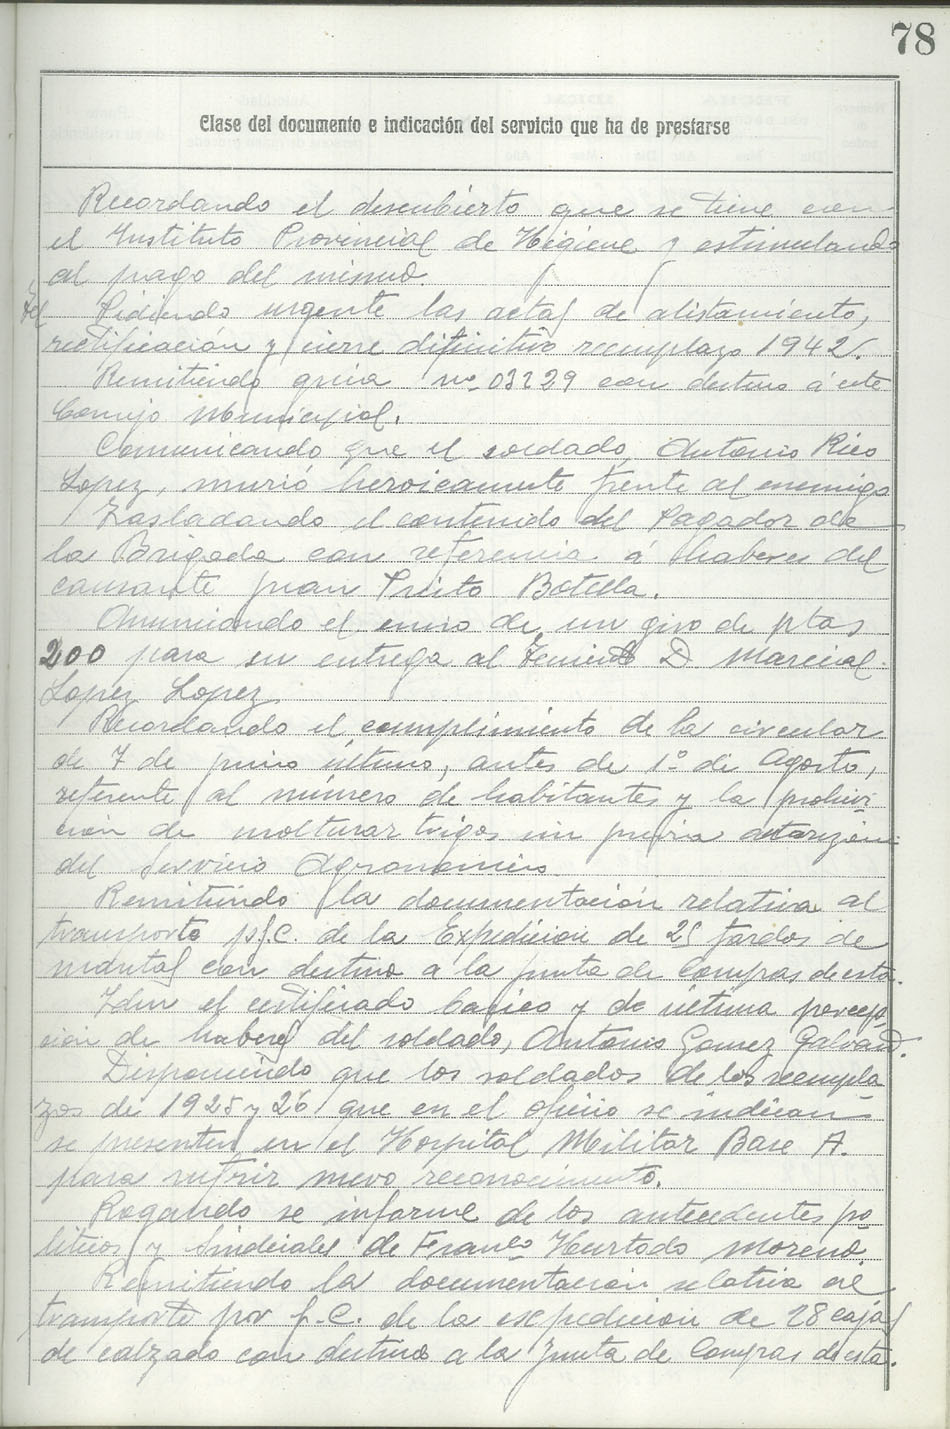 78
Clase del documento e indicación del servicio que ha de prestarse
Recordando el descubierto que se tiene con
el Instituto Provincial de Higiene y estimulando
al pago del mismo.
Pidiendo urgente las actas de alistamiento,
rectificación y cierre difinitivo reemplazo 1942.
Remitiendo guia nº 03229 con destino á este
Consejo Municipal.
Comunicando que el soldado, Antonio Rico
Lopez, murió heroicamente frente al enemigo
Trasladando el contenido del Pagador de
la Brigada con referencia á haberes del
causante Juan Prieto Botella.
Anunciando el envio de un giro de ptas
200 para su entrega al Teniente D Marcial
Lopez Lopez
Recordando el cumplimiento de la circular
de 7 de junio último, antes de 1º de Agosto,
referente al número de habitantes y la prohivi-
ción de molturar trigos sin previa
del Servicio Agronomico
Remitiendo la documentación relativa al
transporte p.f.C. de la Expedicion de 25 fardos de
con destino a la junta de Compras de esta.
Idem el certificado basico y de última percep-
ción de haberes del soldado, Antonio Gomez Galvañ.
Disponiendo que los soldados de los reempla
zos de 1925 y 26 que en el oficio se indican
se presenten en el Hospital Militar Base A.
para sufrir nuevo reconocimiento.
Rogando se informe de los antecedentes po
liticos y Sindicales de Franco Hurtado Moreno.
Remitiendo la documentacion relativa al
transporte por f.C. de la expedicion de 28 cajas
de calzado con destino a la Junta de Compras de esta.